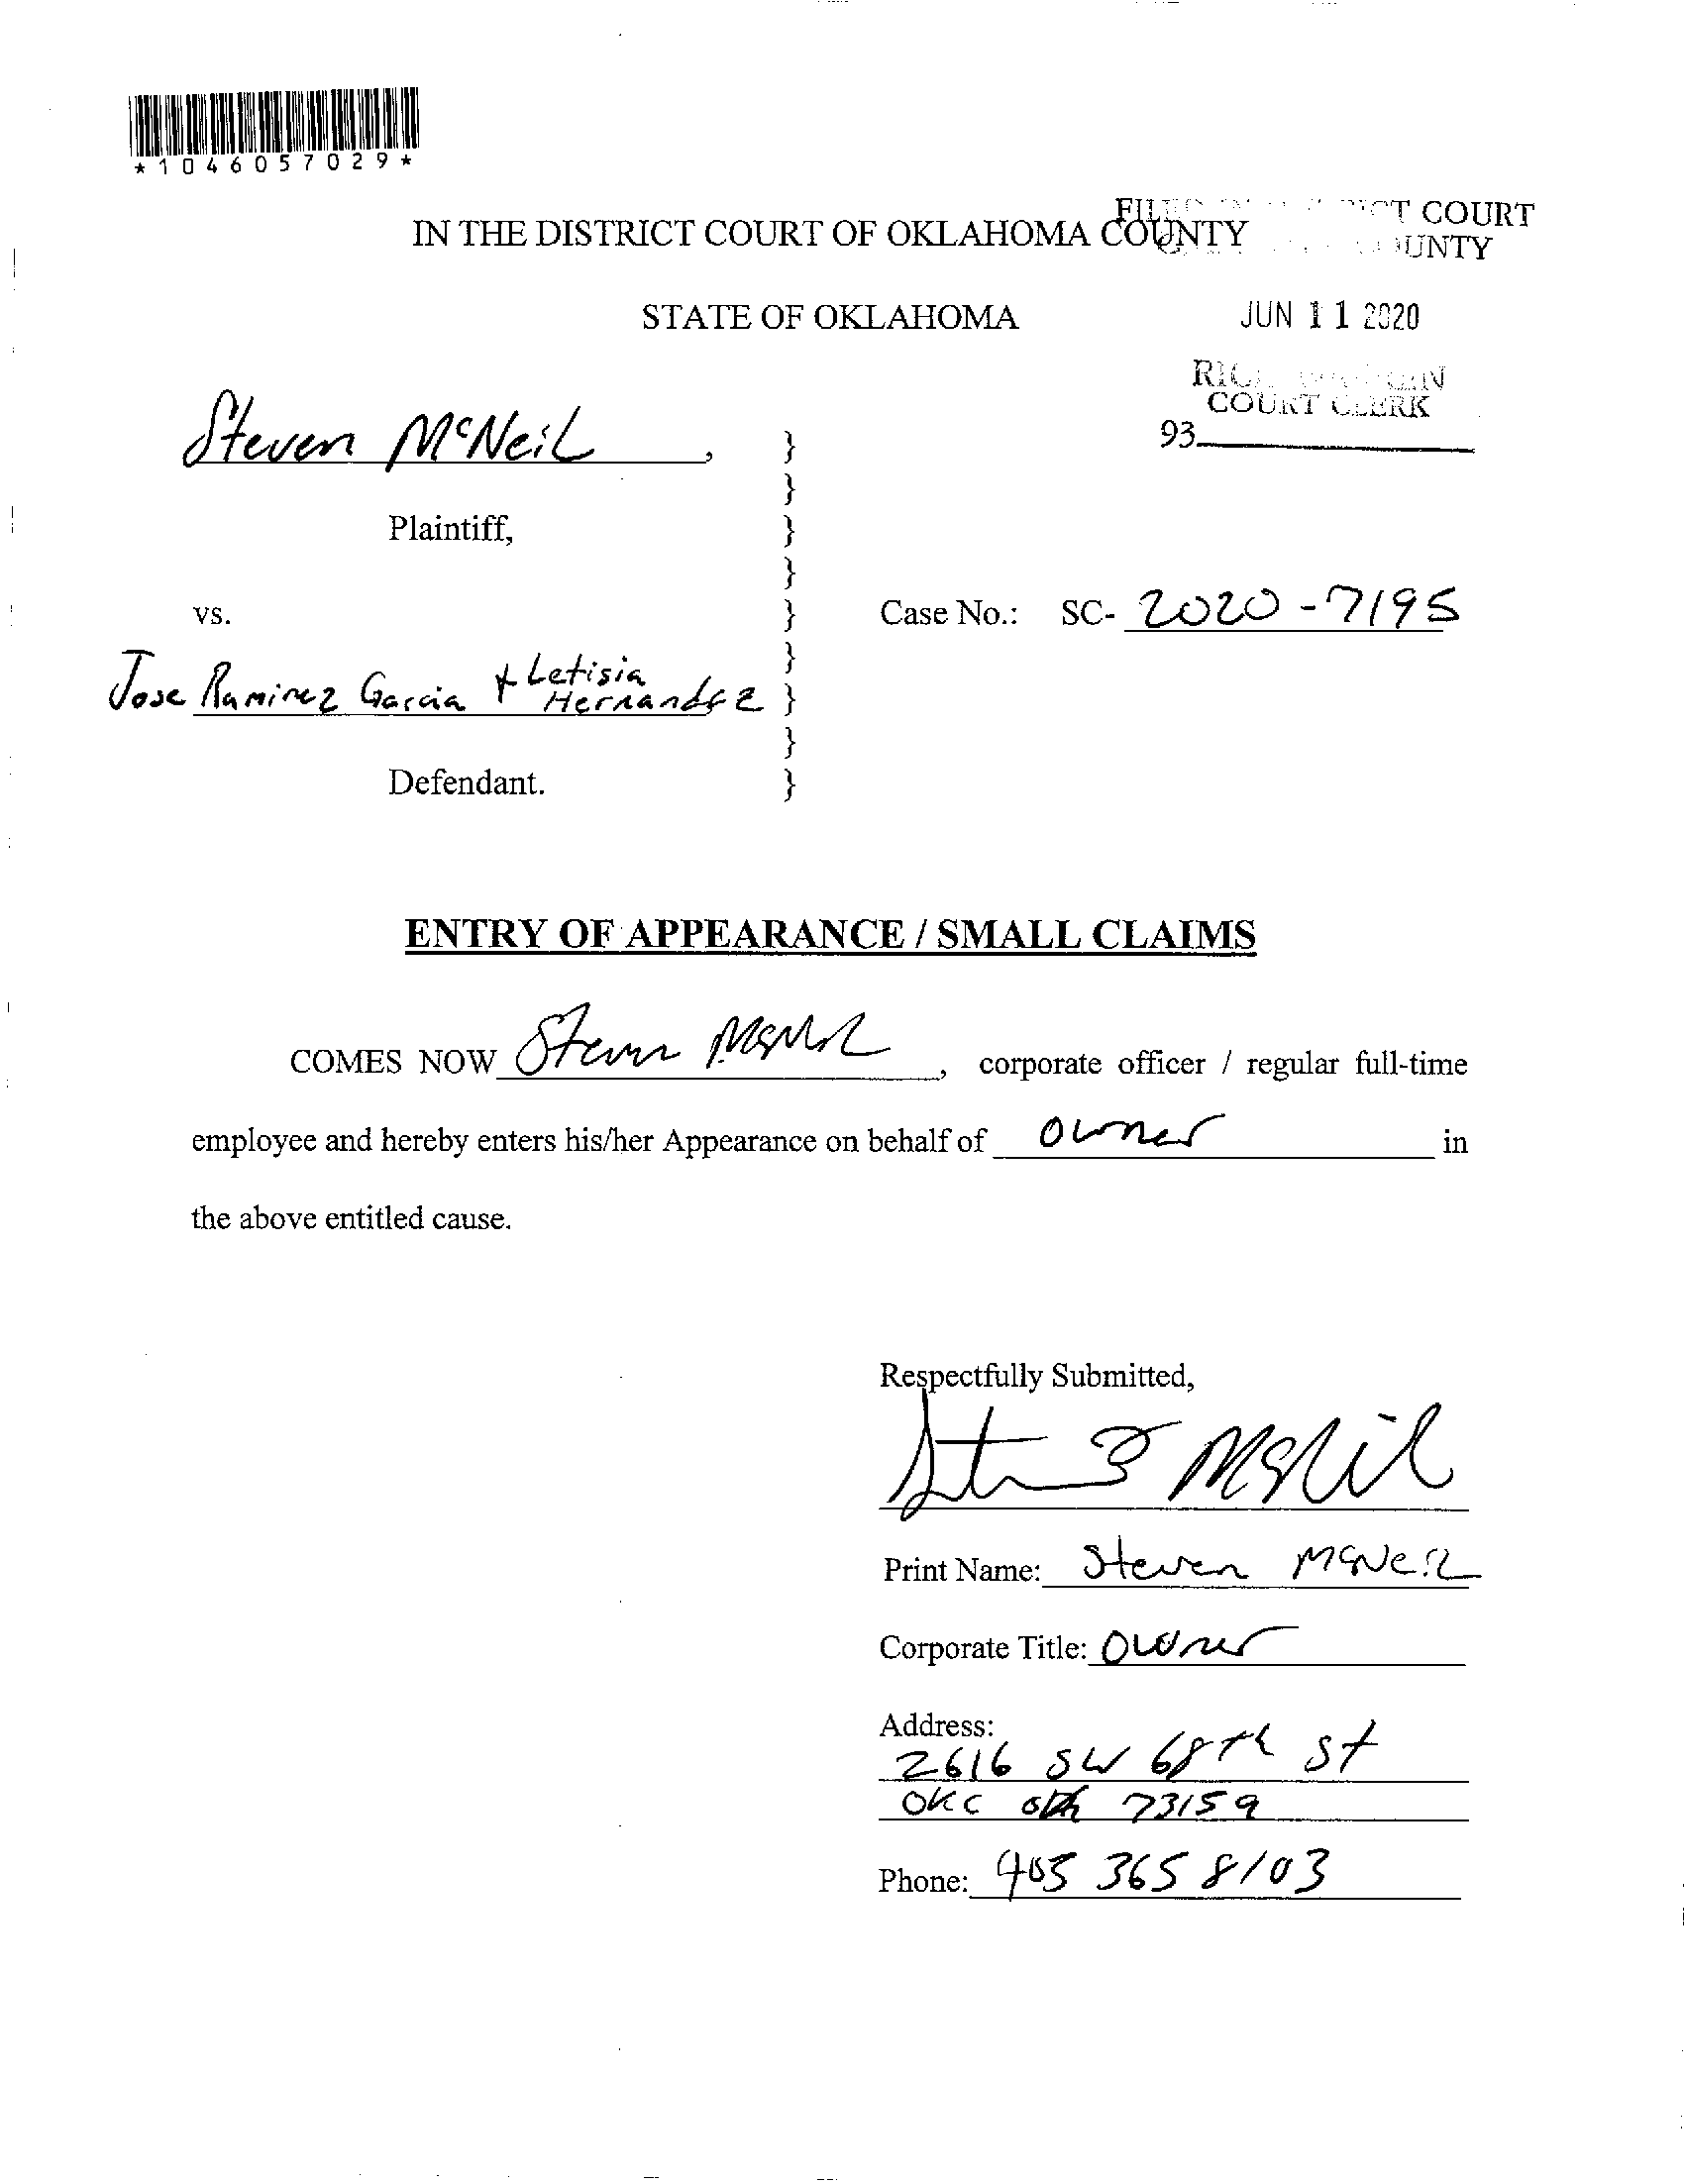 *1046057029*
IN THE DISTRICT COURT OF OKLAHOMA COUNTY
COURT
STATE OF OKLAHOMA
JUN 11 2020
COURT CLERK
93
Steven McNeil ,
}
}
Plaintiff,
}
}
vs.
}
Case No.: SC- 2020-7195
}
Jose Ramirez Garcia + Letisia
Hernandez
}
}
Defendant.
}
ENTRY OF APPEARANCE / SMALL CLAIMS
COMES NOW Steven McNeil , corporate officer / regular full-time
employee and hereby enters his/her Appearance on behalf of owner in
the above entitled cause.
Respectfully Submitted,
Print Name: Steven McNeil
Corporate Title: Owner
Address:
2616 SW 68th st
OKC 73159
Phone: 405 365 8103